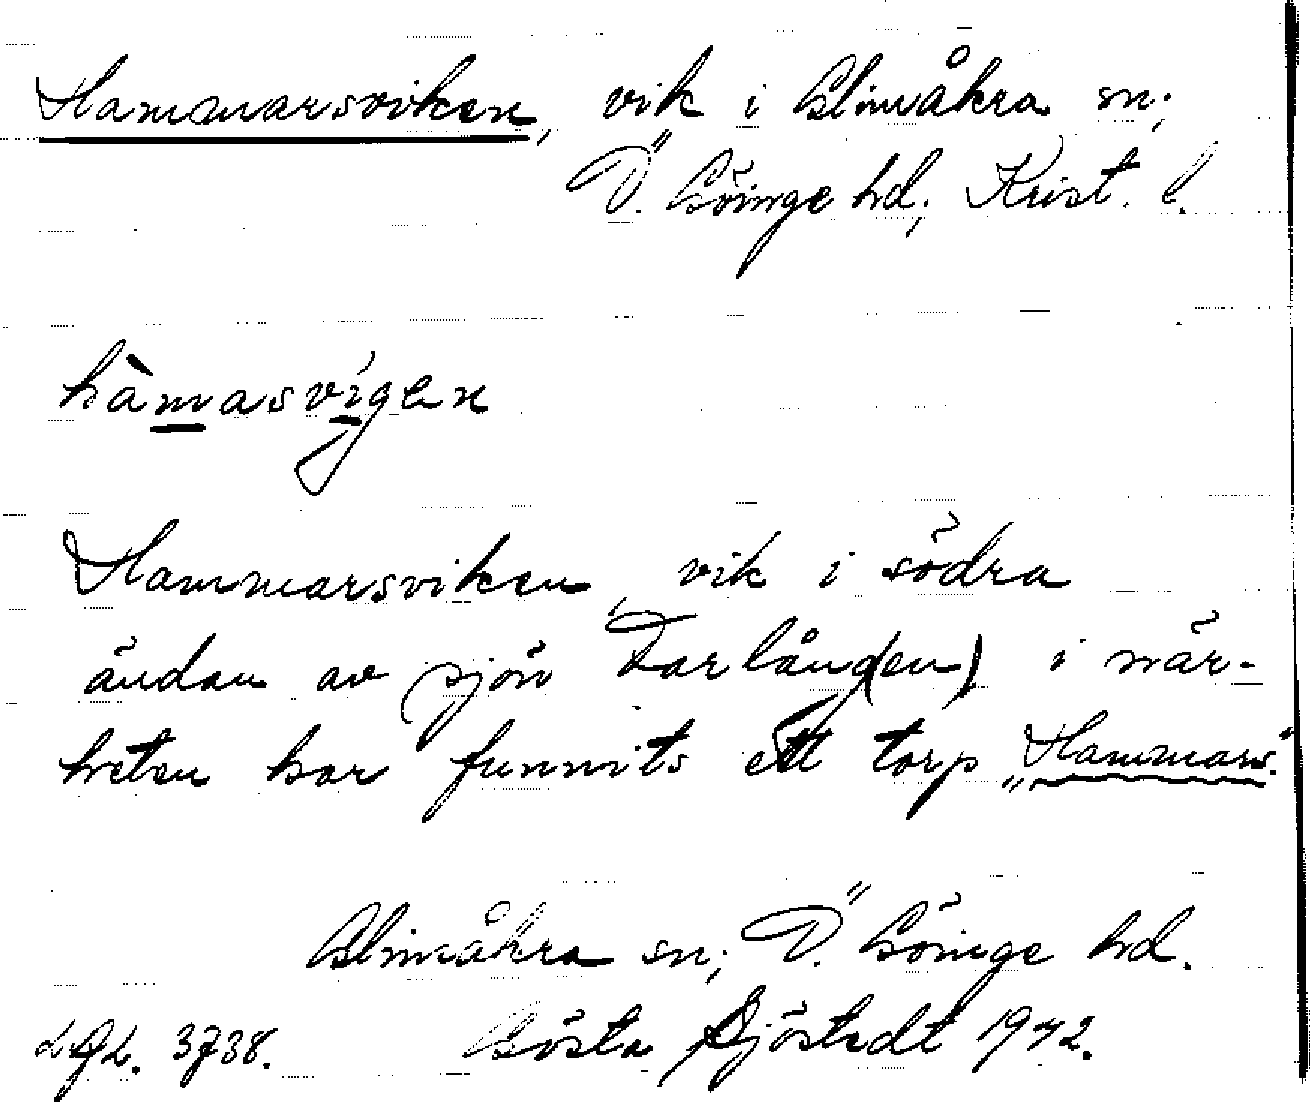 Hammarsviken, vik i Glimåkra sn;
Ö. Göinge hd; Krist. l.
hàmasvígen
Hammarsviken, vik i södra
ändan av sjön Tarlång(en) i när-
heten har funnits ett torp „Hammars".
Glimåkra sn; Ö. Göinge hd.
3738. Gösta Sjöstedt 1942.